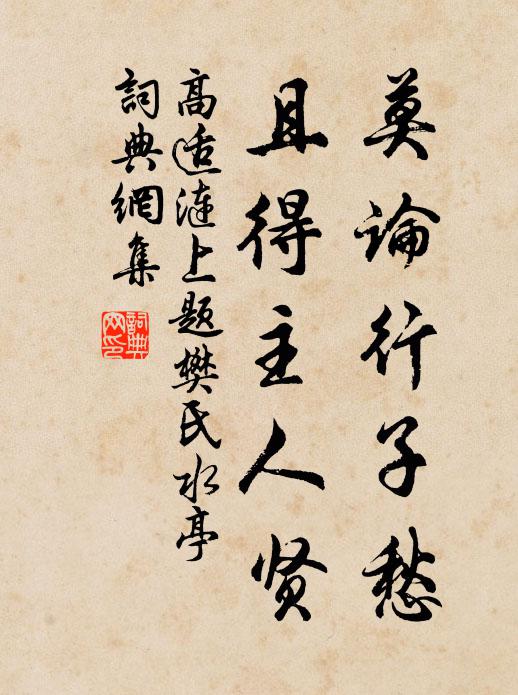 莫論行子愁
且得主人贤
高适漣上题樊氏水亭
詞典網集
詞典网印